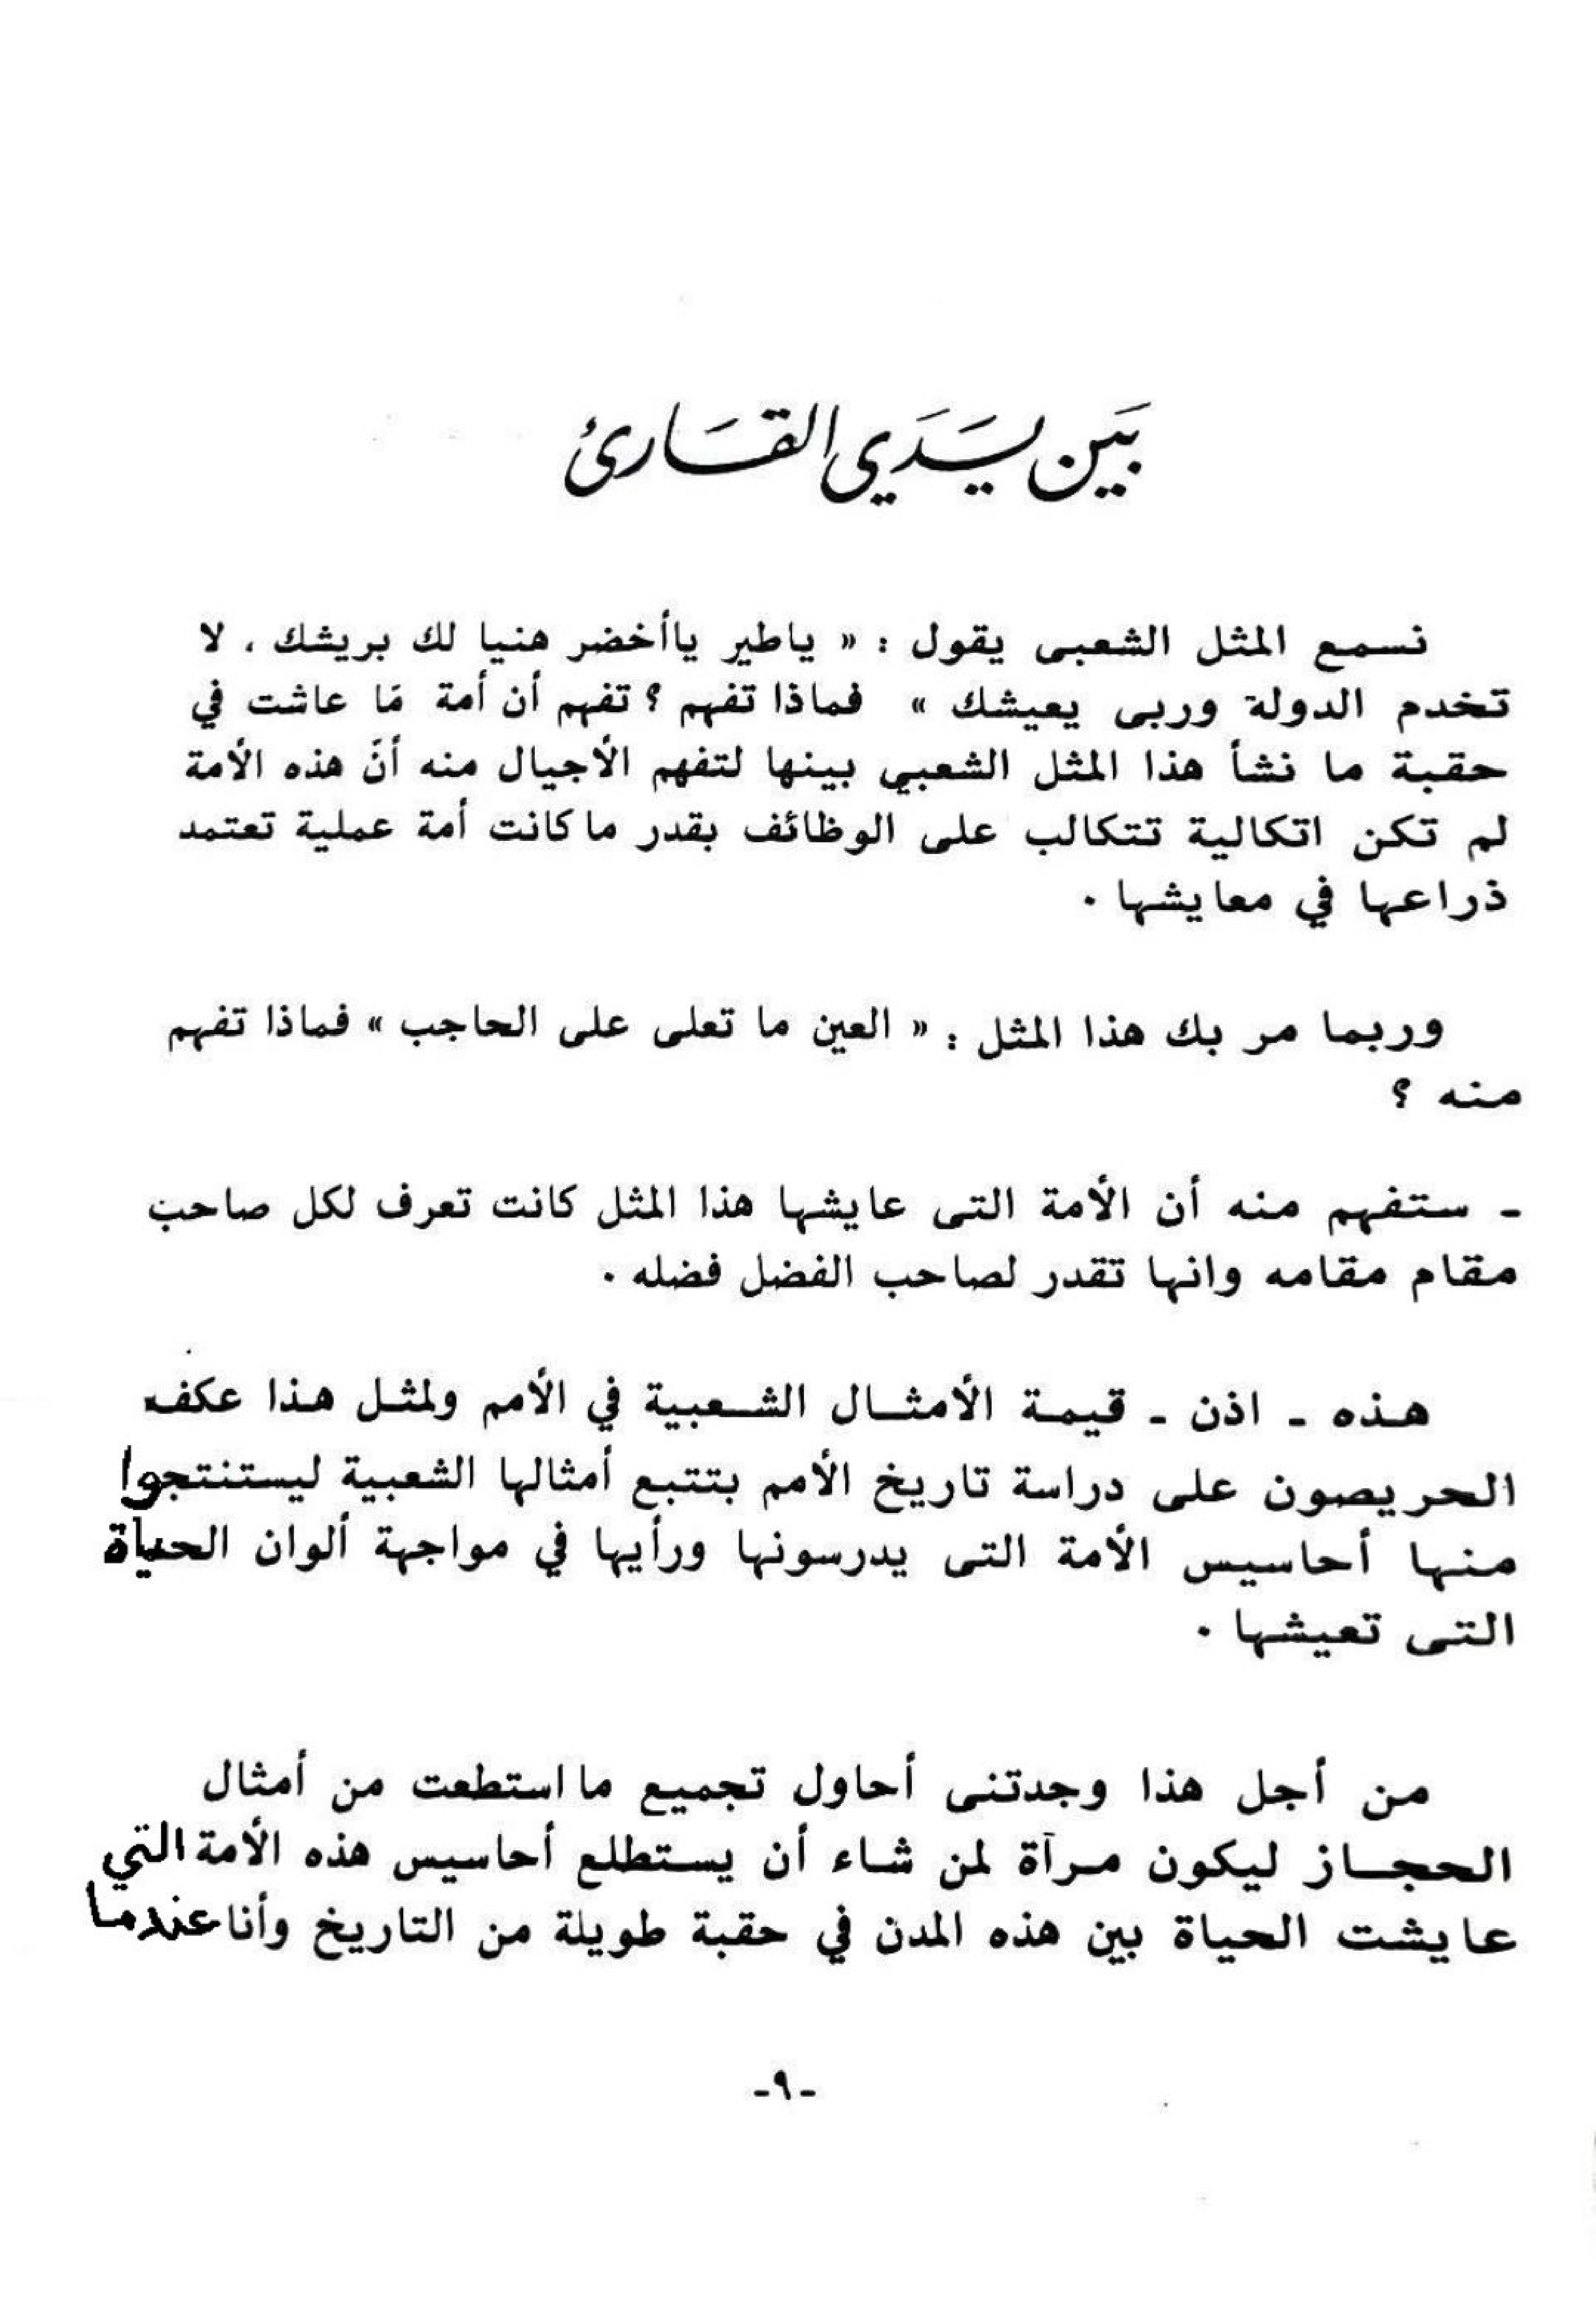 بَين يَدَي القَارئ
نسمع المثل الشعبى يقول : « ياطير ياأخضر هنيا لك بريشك ، لا
تخدم الدولة وربى يعيشك » فماذا تفهم ؟ تفهم أن أمة مَا عاشت في
حقبة ما نشأ هذا المثل الشعبي بينها لتفهم الأجيال منه أنَّ هذه الأمة
لم تكن اتكالية تتكالب على الوظائف بقدر ما كانت أمة عملية تعتمد
ذراعها في معايشها .
وربما مر بك هذا المثل : « العين ما تعلى على الحاجب » فماذا تفهم
منه ؟
ـ ستفهم منه أن الأمة التى عايشها هذا المثل كانت تعرف لكل صاحب
مقام مقامه وانها تقدر لصاحب الفضل فضله .
هذه ـ اذن ـ قيمة الأمثال الشعبية في الأمم ولمثل هذا عكف
الحريصون على دراسة تاريخ الأمم بتتبع أمثالها الشعبية ليستنتجوا
منها أحاسيس الأمة التى يدرسونها ورأيها في مواجهة ألوان الحياة
التى تعيشها .
من أجل هذا وجدتنى أحاول تجميع ما استطعت من أمثال
الحجاز ليكون مرآة لمن شاء أن يستطلع أحاسيس هذه الأمة التي
عايشت الحياة بين هذه المدن في حقبة طويلة من التاريخ وأنا عندما
-٩-